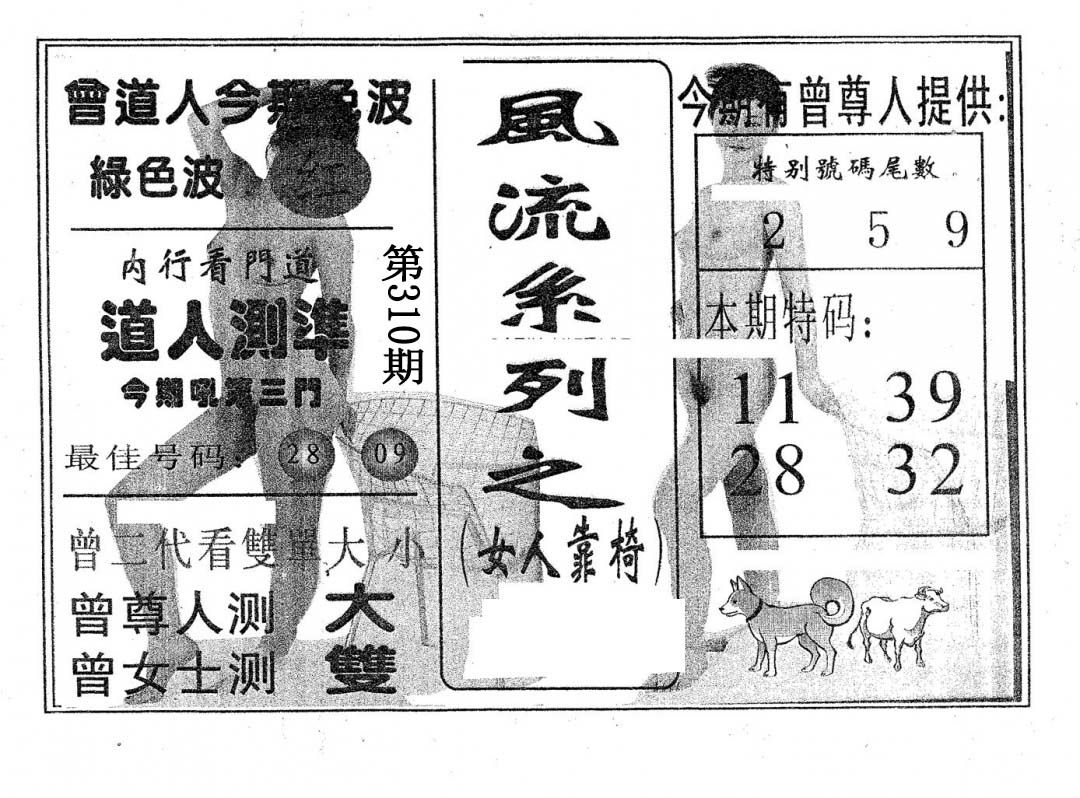 曾道人今期色波
綠色波
内行看門道
道人測準
今期吼準三門
最佳号码: 28 09
曾二代看雙單大小
曾尊人测 大
曾女士测 雙
第310期
風流系列之
(女人靠椅)
今期有曾尊人提供:
特别號碼尾數
2 5 9
本期特码:
11 39
28 32